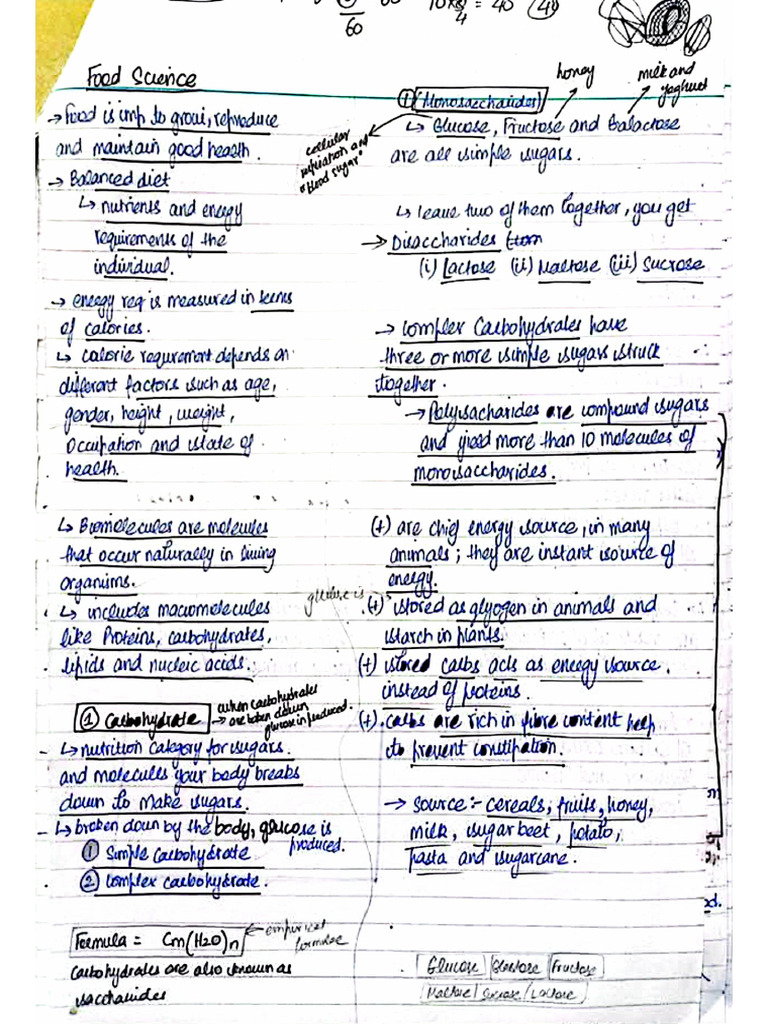 60
10 = 40 40
4
60
Food Science
→ Food is imp to grow, reproduce
and maintain good health.
→ Balanced diet
↳ nutrients and energy
requirements of the
individual.
→ energy req is measured in terms
of calories.
↳ calorie requirement depends on
different factors such as age,
gender, height, weight,
occupation and state of
health.
↳ Biomolecules are molecules
that occur naturally in living
organisms.
↳ includes macromolecules
like Proteins, carbohydrates,
lipids and nucleic acids.
① Carbohydrate
→ when carbohydrates
are broken down
glucose is produced.
- ↳ nutrition category for sugars
and molecules your body breaks
down to make sugars.
- ↳ broken down by the body, glucose is
produced.
① Simple Carbohydrate
② Complex carbohydrate.
Formula = Cm(H2O)n ← empirical
formulae
Carbohydrates are also known as
saccharides
honey
milk and
yoghurt
① Monosaccharides
cellular
respiration and
"blood sugar"
↳ Glucose, Fructose and Galactose
are all simple sugars.
↳ leave two of them together, you get
→ Disaccharides
(i) Lactose (ii) Maltose (iii) Sucrose
→ Complex Carbohydrates have
three or more simple sugars struck
together.
→ Polysacharides are compound sugars
and yield more than 10 molecules of
monosaccharides.
(+) are chief energy source, in many
animals; they are instant source of
energy.
glucose is
(+) stored as glyogen in animals and
starch in plants.
(+) stored carbs acts as energy source,
instead of proteins.
(+) carbs are rich in fibre content help
to prevent constipation.
→ source:- cereals, fruits, honey,
milk, sugarbeet, potato,
pasta and sugarcane.
Glucose Fructose
Maltose Sucrose Lactose